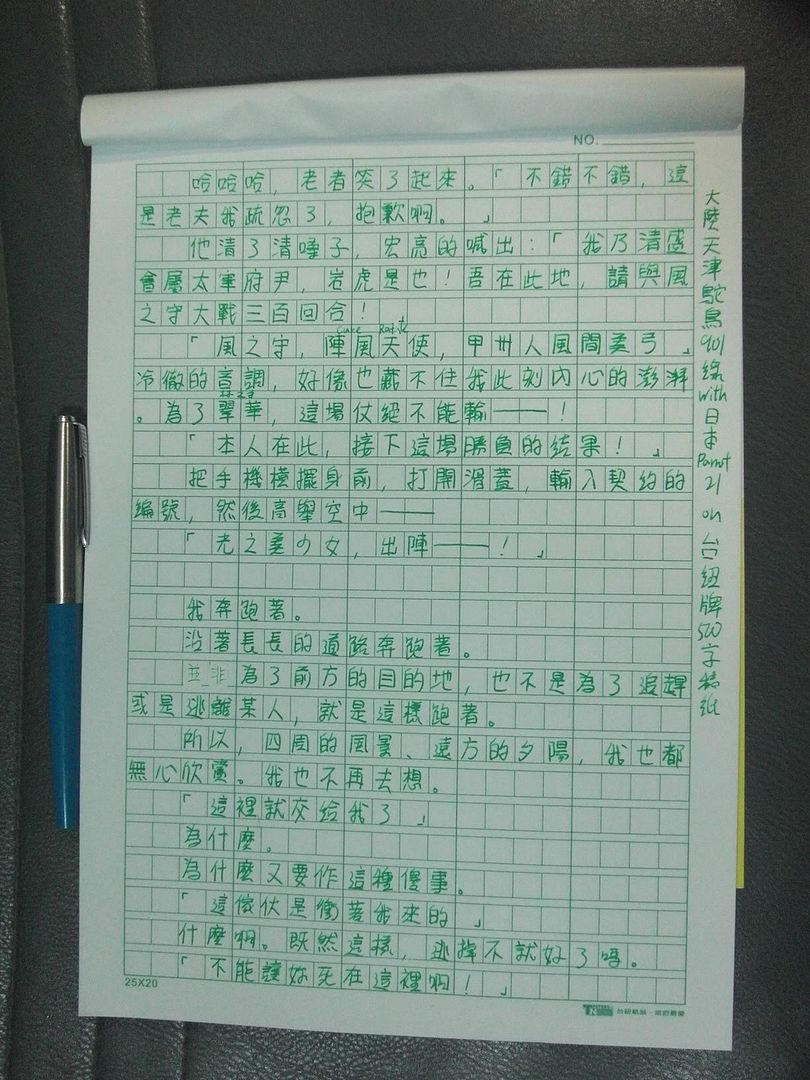 NO.
哈哈哈，老者笑了起來。「不錯不錯，這
是老夫我疏忽了，抱歉啊。」
他清了清嗓子，宏亮的喊出：「我乃清盛
會屬太軍府尹，岩虎是也！吾在此地，請與風
之守大戰三百回合！
「風之守，陣風天使，甲州人風間柔弓」
冷徹的音調，好像也藏不住我此刻內心的澎湃
。為了翠華，這場仗絕不能輸——！
「本人在此，接下這場勝負的結果！」
把手機橫擺身前，打開滑蓋，輸入契約的
編號，然後高舉空中——
「光之柔の女，出陣——！」
我奔跑著。
沿著長長的道路奔跑著。
並非為了前方的目的地，也不是為了追趕
或是逃離某人，就是這樣跑著。
所以，四周的風景、遠方的夕陽，我也都
無心欣賞。我也不再去想。
「這裡就交給我了」
為什麼。
為什麼又要作這種傻事。
「這傢伙是衝著我來的」
什麼啊。既然這樣，逃掉不就好了嗎。
「不能讓妳死在這裡啊！」
25X20
大陸天津鴕鳥901綠with日本Parrot21 on 台紐牌500字稿紙